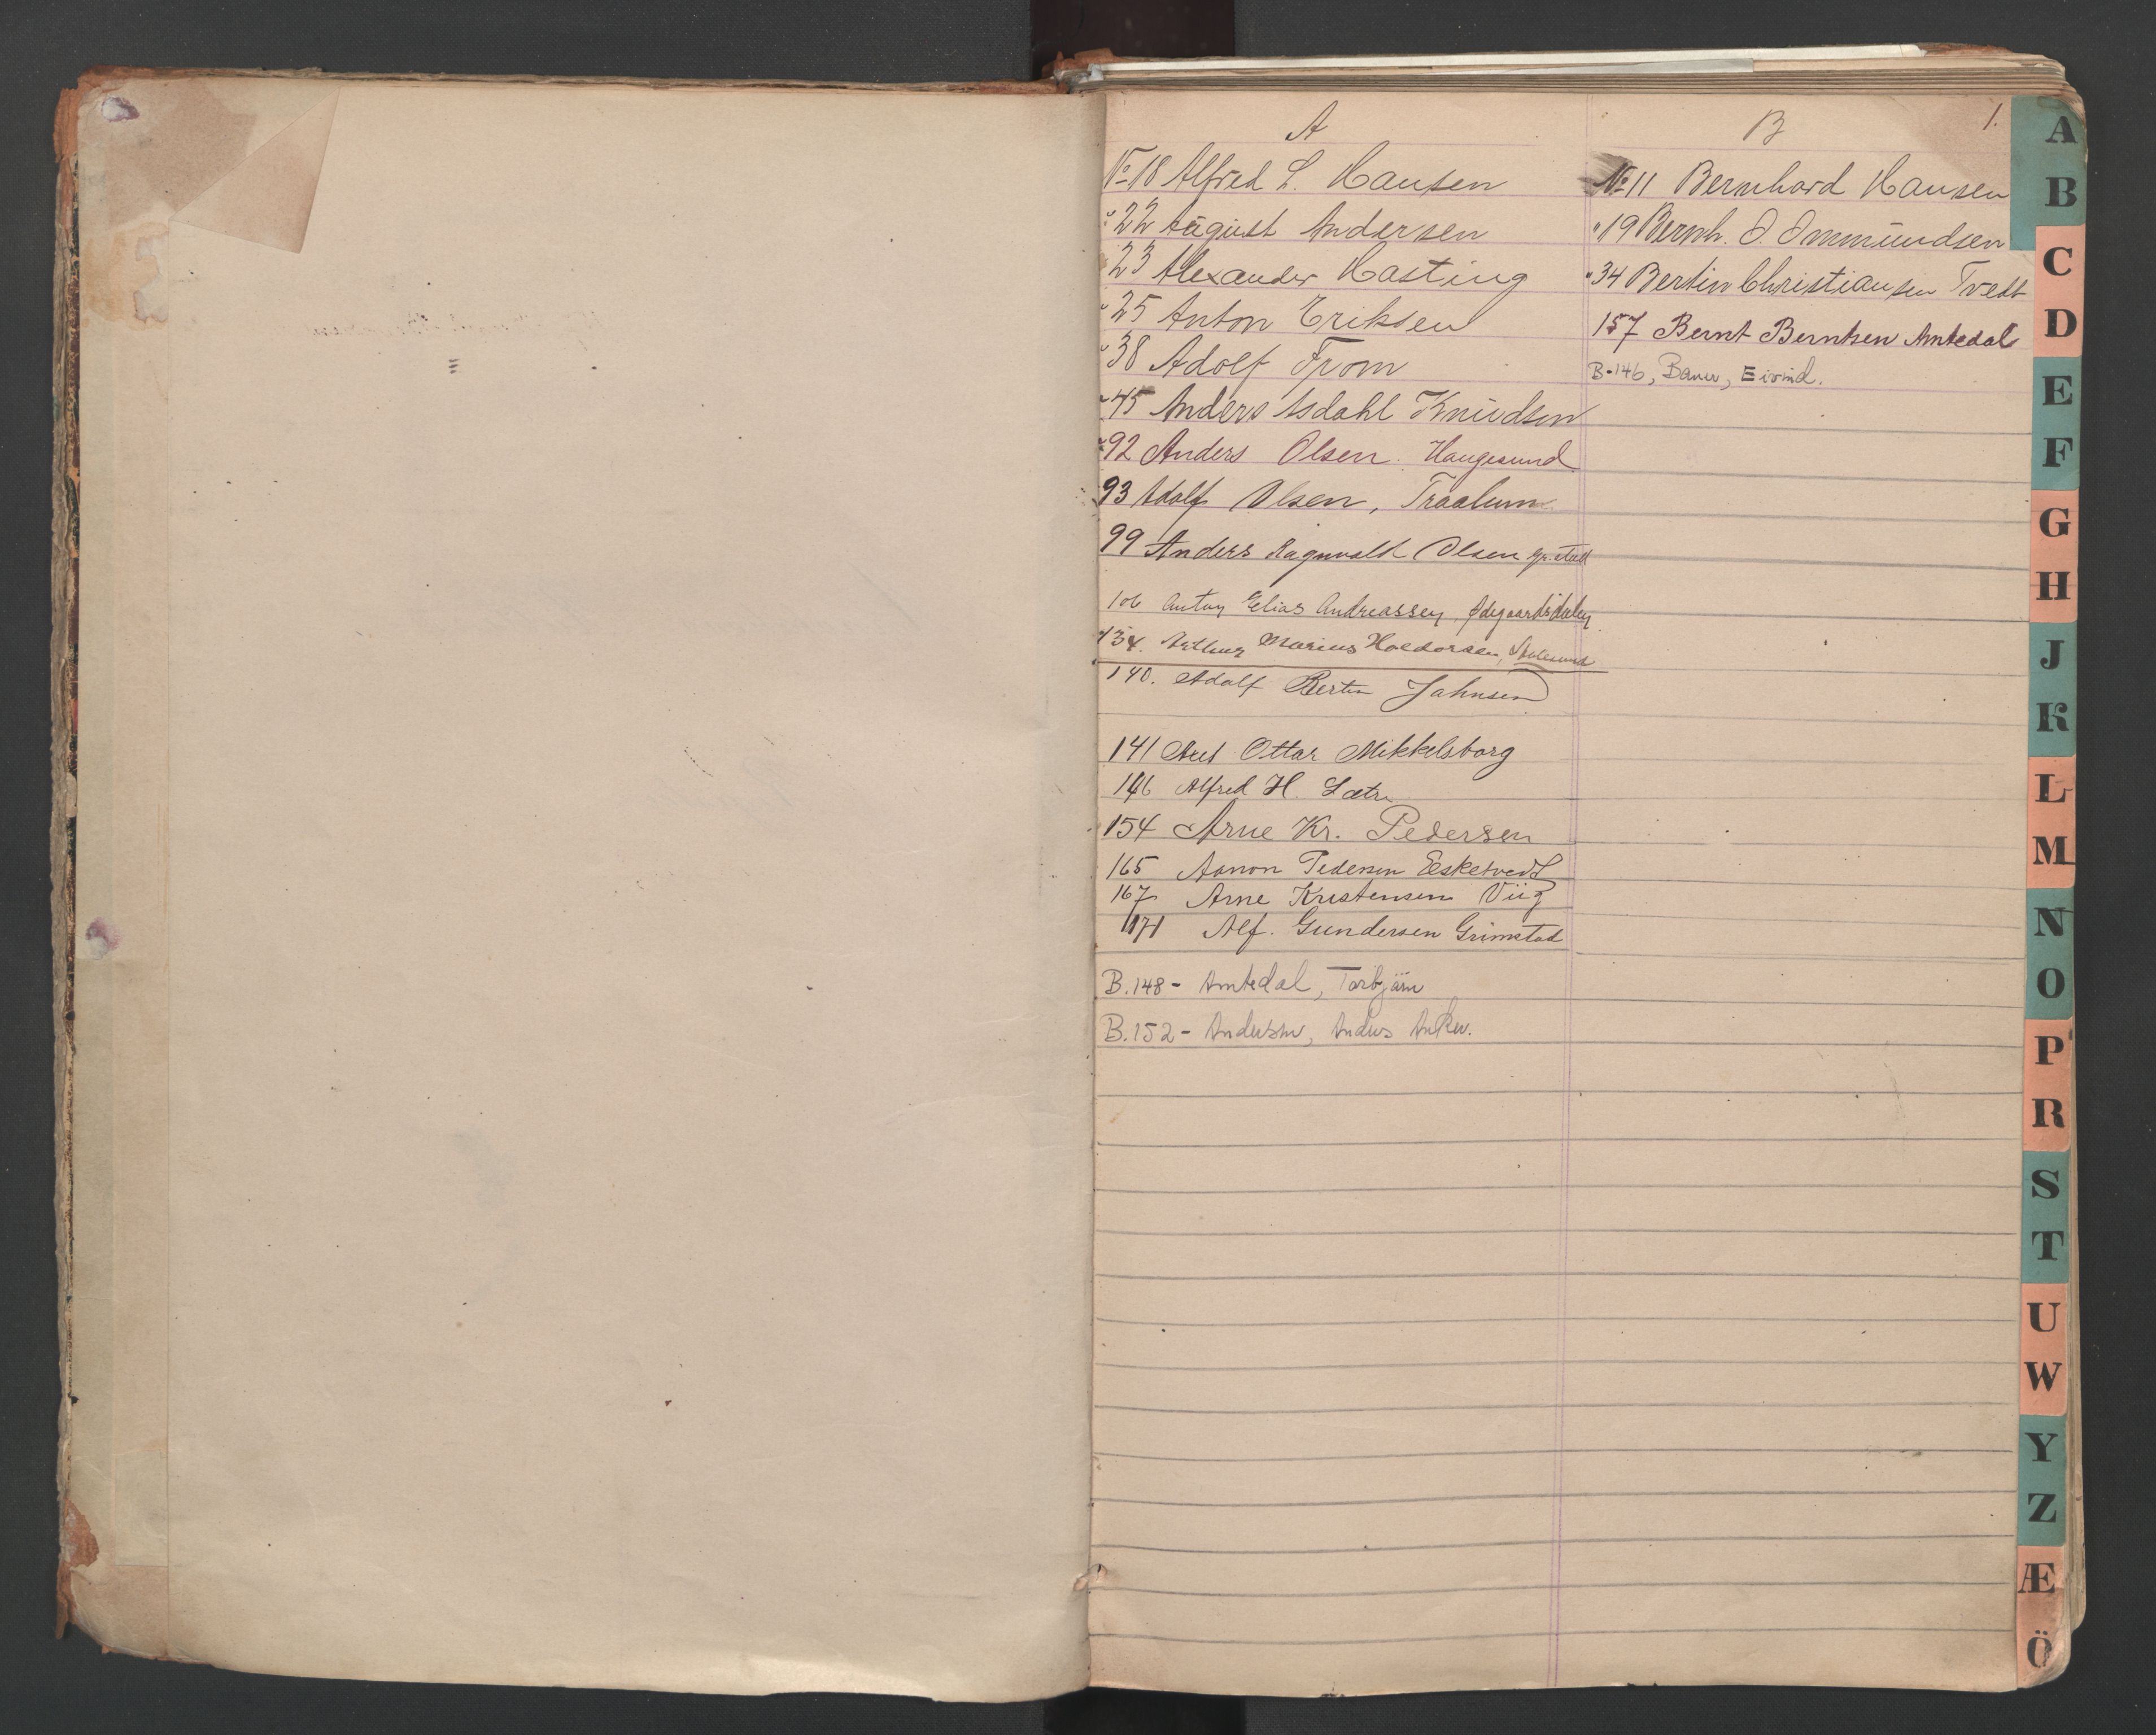 A
№ 18 Alfred L. Hansen
" 22 August Andersen
" 23 Alexander Hasting
" 25 Anton Eriksen
" 38 Adolf From
" 45 Anders Asdahl Knudsen
" 92 Anders Olsen. Haugesund
93 Adolf Olsen, Traalum
99 Anders Ragnvald Olsen
106 Anton Elias Andreassen, Ødegaardsdalen
134. Arthur Marius Haldorsen,
140. Adolf Bertin Jahnsen
141 Axel Ottar Mikkelsborg
146 Alfred H. Sætre
154 Arne Kr. Pedersen
165 Aanon Pedersen Eesketvedt
167 Arne Kristensen Viig
171 Alf. Gundersen Grimstad
B.148 - Amtedal, Torbjørn
B.152 - Andersen, Anders Anker.
B
1.
№ 11 Bernhard Hansen
" 19 Bernh. O. Ommundsen
" 34 Bertin Christiansen Tvedt
157 Bernt Berntsen Amtedal
B-146, Bauer, Eivind.
A
B
C
D
E
F
G
H
J
K
L
M
N
O
P
R
S
T
U
W
Y
Z
Æ
Ö